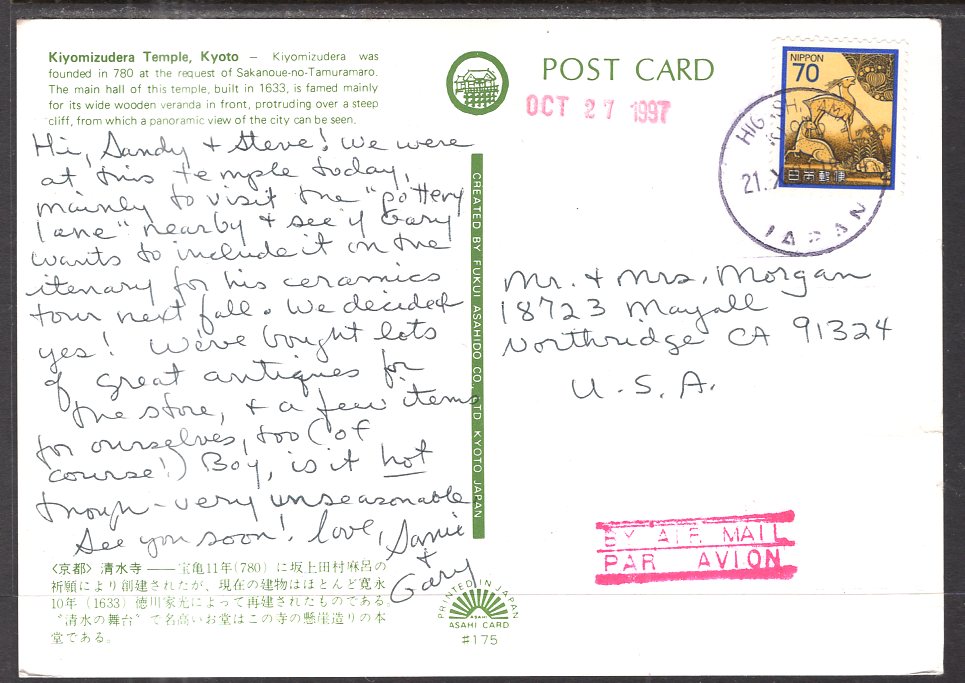 Kiyomizudera Temple, Kyoto — Kiyomizudera was
founded in 780 at the request of Sakanoue-no-Tamuramaro.
The main hall of this temple, built in 1633, is famed mainly
for its wide wooden veranda in front, protruding over a steep
cliff, from which a panoramic view of the city can be seen.
POST CARD
OCT 27 1997
NIPPON
70
日本郵便
21.X
JAPAN
Hi, Sandy + Steve! We were
at this temple today,
mainly to visit the "pottery
lane" nearby + see if Gary
wants to include it on the
itenary for his ceramics
tour next fall. We decided
yes! We've bought lots
of great antiques for
the store, + a few items
for ourselves, too (of
course!) Boy, is it hot
though - very unseasonable
See you soon! Love, Samie
+
Gary
CREATED BY FUKUI ASAHIDO CO., LTD KYOTO JAPAN
Mr. + Mrs. Morgan
18723 Mayall
Northridge CA 91324
U.S.A.
BY AIR MAIL
PAR AVION
〈京都〉 清水寺 ── 宝亀11年(780) に坂上田村麻呂の
祈願により創建されたが、現在の建物はほとんど寛永
10年 (1633) 徳川家光によって再建されたものである。
“清水の舞台”て名高いお堂はこの寺の懸崖造りの本
堂である。
PRINTED IN JAPAN
ASAHI
ASAHI CARD
#175